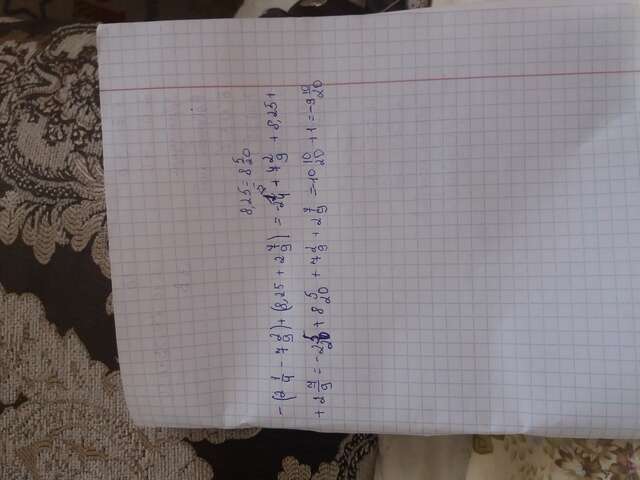 8,25 = 8 5/20
-(2 1/4 - 7 2/9) + (8,25 + 2 7/9) = -2 1/4 + 7 2/9 + 8,25 +
+ 2 7/9 = -2 5/20 + 8 5/20 + 7 2/9 + 2 7/9 = 10 10/20 + 1 = -9 10/20